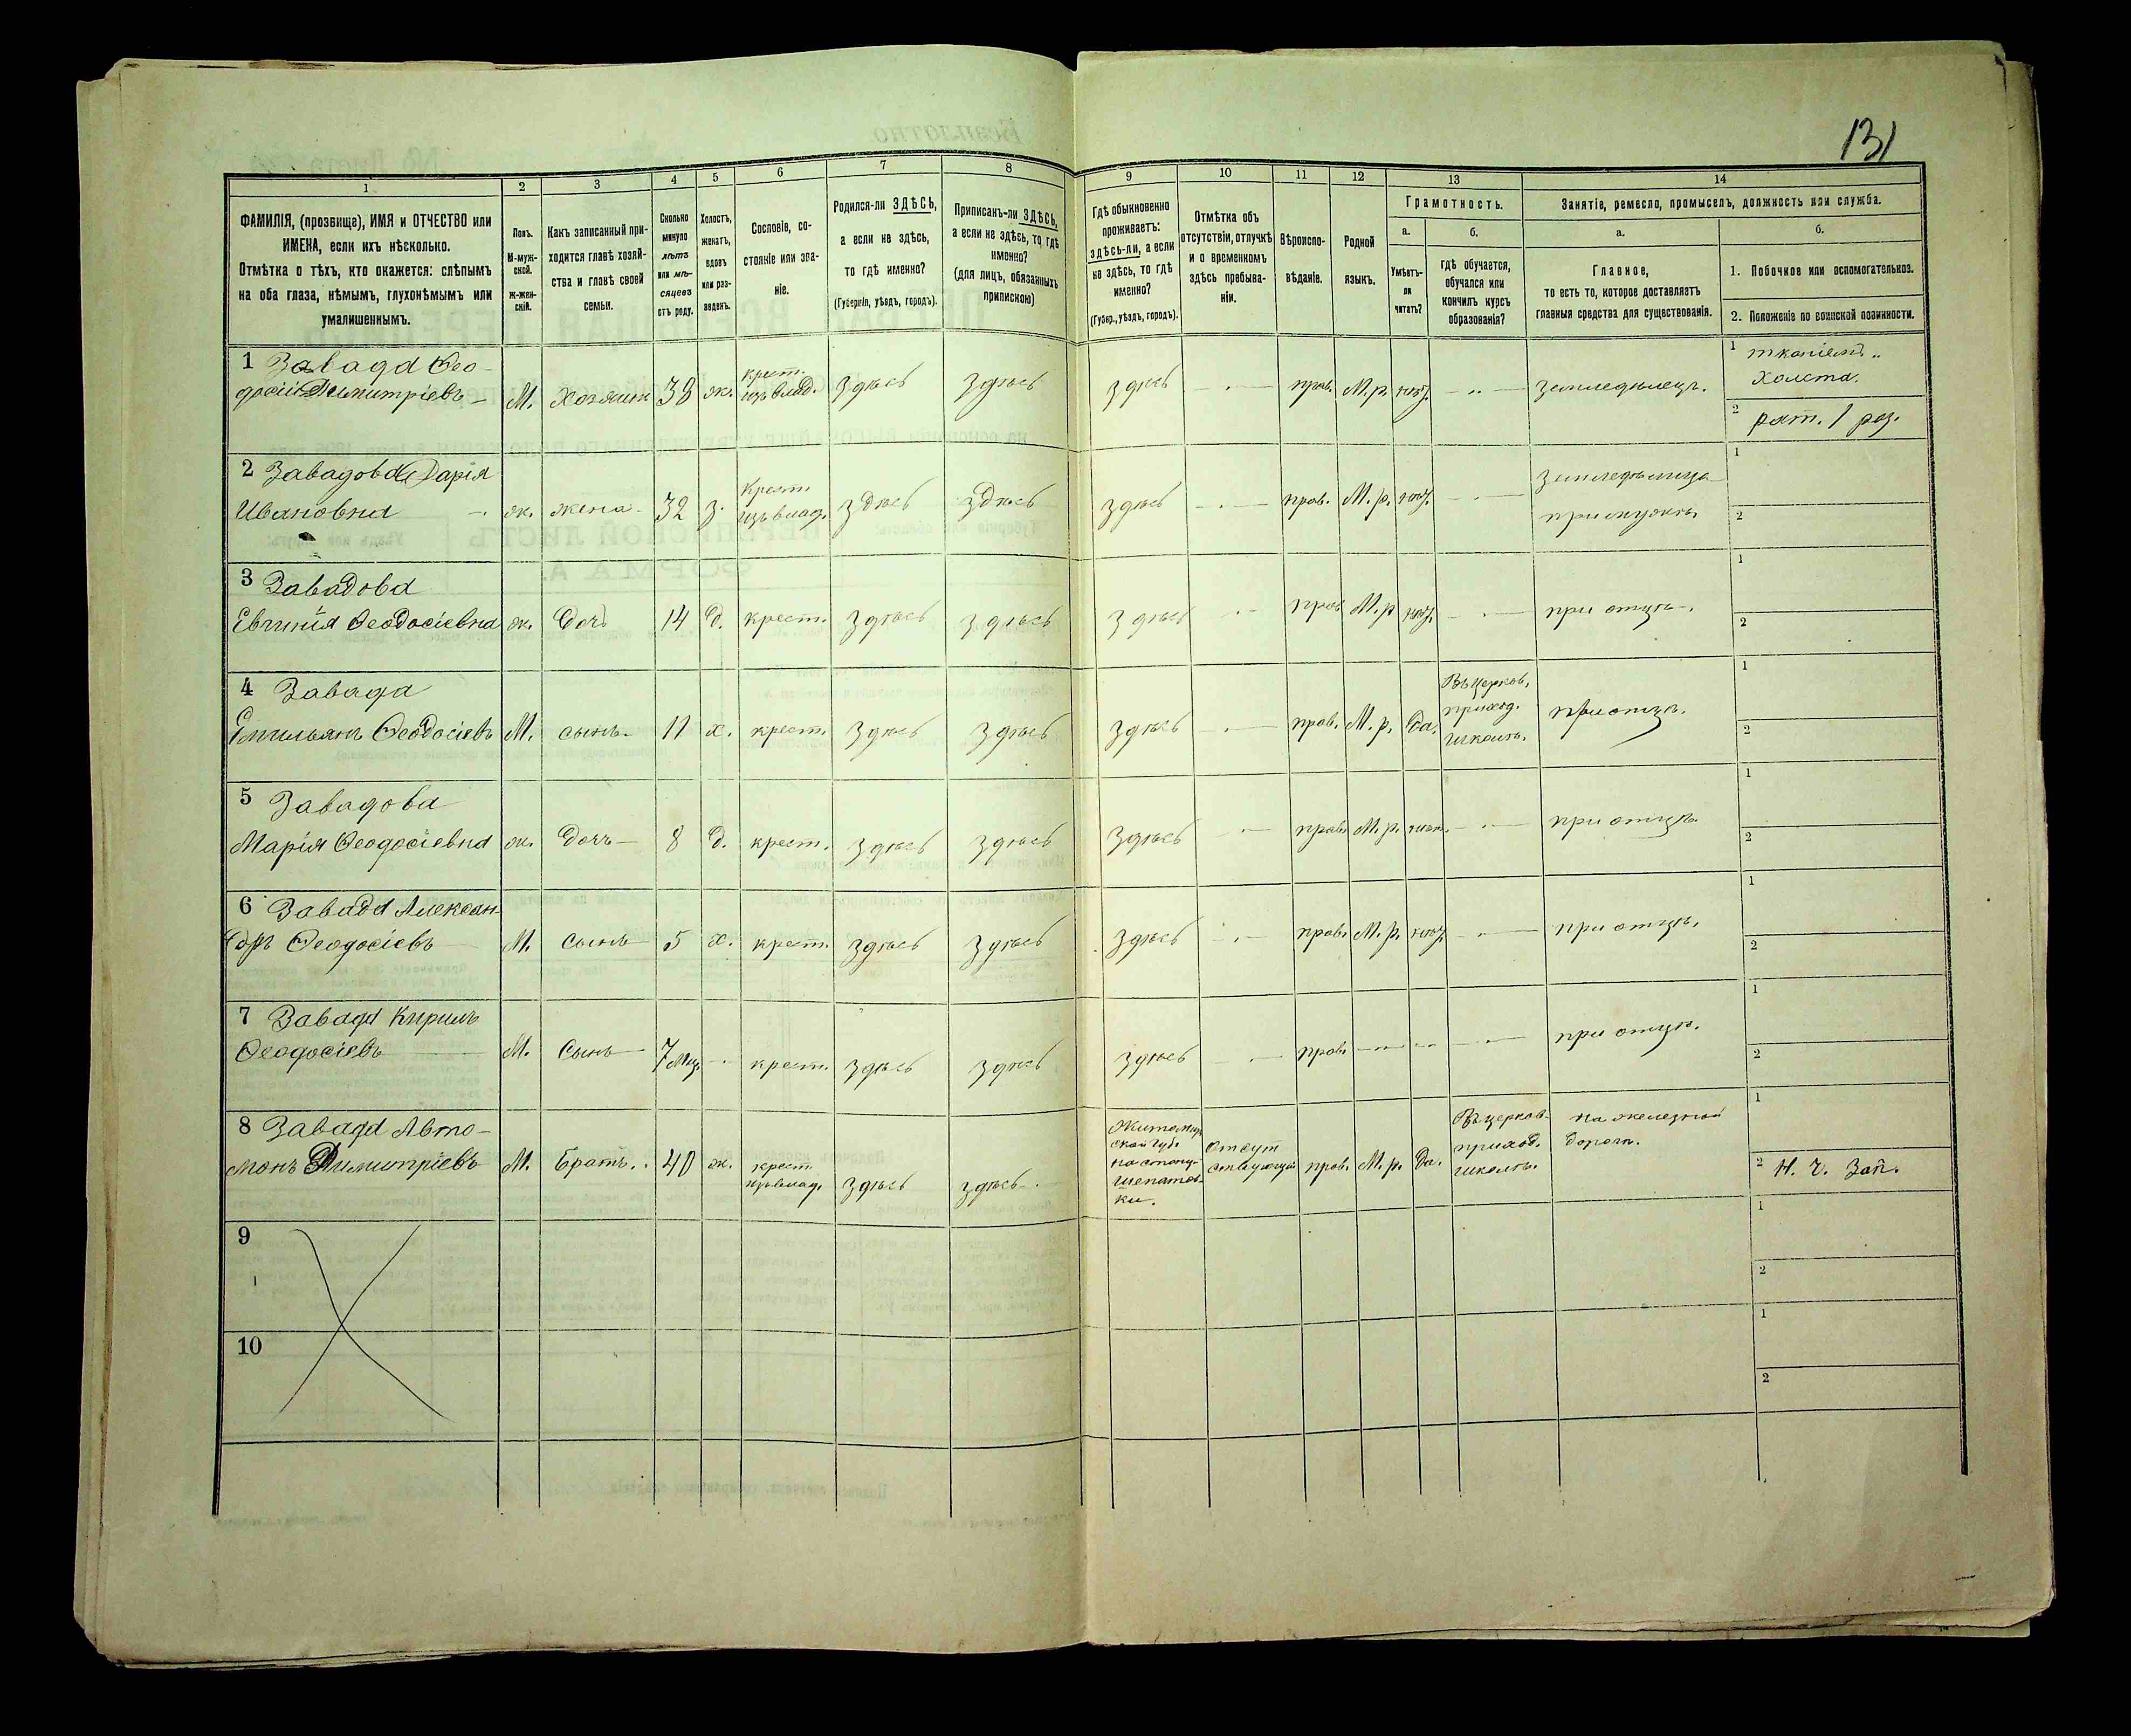 131
1 2 3 4 5 6 7 8 9 10 11 12 13 14
ФАМИЛІЯ, (прозвище), ИМЯ и ОТЧЕСТВО или
ИМЕНА, если ихъ нѣсколько.
Отмѣтка о тѣхъ, кто окажется: слѣпымъ
на оба глаза, нѣмымъ, глухонѣмымъ или
умалишеннымъ.
Полъ.
М-муж-
ской.
Ж-жен-
скій.
Какъ записанный при-
ходится главѣ хозяй-
ства и главѣ своей
семьи.
Сколько
минуло
лѣтъ
или мѣ-
сяцевъ
отъ роду.
Холостъ,
женатъ,
вдовъ
или раз-
веденъ.
Сословіе, со-
стояніе или зва-
ніе.
Родился-ли ЗДѢСЬ,
а если не здѣсь,
то гдѣ именно?
(Губернія, уѣздъ, городъ).
Приписанъ-ли ЗДѢСЬ,
а если не здѣсь, то гдѣ
именно?
(для лицъ, обязанныхъ
припискою)
Гдѣ обыкновенно
проживаетъ:
здѣсь-ли, а если
не здѣсь, то гдѣ
именно?
(Губер., уѣздъ, городъ).
Отмѣтка объ
отсутствіи, отлучкѣ
и о временномъ
здѣсь пребыва-
ніи.
Вѣроиспо-
вѣданіе.
Родной
языкъ.
Грамотность.
а.
Умѣетъ-
ли
читать?
б.
гдѣ обучается,
обучался или
кончилъ курсъ
образованія?
Занятіе, ремесло, промыселъ, должность или служба.
а.
Главное,
то есть то, которое доставляетъ
главныя средства для существованія.
б.
1. Побочное или вспомогательное.
2. Положеніе по воинской повинности.
1 Завада Ѳео-
досій Димитріевъ М. Хозяинъ 38 ж. крест. изъ влад. здѣсь здѣсь здѣсь прав. М.р. нѣт. земледѣлецъ.
1 тканіемъ
холста.
2 рат. 1 раз.
2 Завадова Дарія
Ивановна ж. жена 32 з. крест. изъ влад. здѣсь здѣсь здѣсь прав. М.р. нѣт. земледѣлица
при мужѣ.
1
2
3 Завадова
Евгинія Ѳеодосіевна ж. дочь 14 д. крест. здѣсь здѣсь здѣсь прав. М.р. нѣт. при отцѣ.
1
2
4 Завада
Емильянъ Ѳеодосіевъ М. сынъ 11 х. крест. здѣсь здѣсь здѣсь прав. М.р. да. Въ церков.
приход.
школѣ. при отцѣ.
1
2
5 Завадова
Марія Ѳеодосіевна ж. дочь 8 д. крест. здѣсь здѣсь здѣсь прав. М.р. нѣт. при отцѣ.
1
2
6 Завада Алексан-
дръ Ѳеодосіевъ М. сынъ 5 х. крест. здѣсь здѣсь здѣсь прав. М.р. нѣт. при отцѣ.
1
2
7 Завада Кирилъ
Ѳеодосіевъ М. Сынъ 7 мѣц. крест. здѣсь здѣсь здѣсь прав. при отцѣ.
1
2
8 Завада Авто-
монъ Димитріевъ М. Братъ. 40 ж. крест. изъ влад. здѣсь здѣсь. Житомир
ской губ.
на станц.
Шепетов-
ки. Отсут
ствующій прав. М.р. да. Въ церков.
приход.
школѣ. на железной
дорогѣ.
1
2 Н. Ч. Зап.
9
1
2
10
1
2